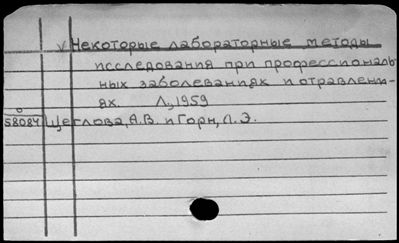 √ Некоторые лабораторные методы
исследования при профессиональ-
ных заболеваниях и отравлени-
ях. Л., 1959
58084 Щеглова, А.В. и Горн, Л.Э.